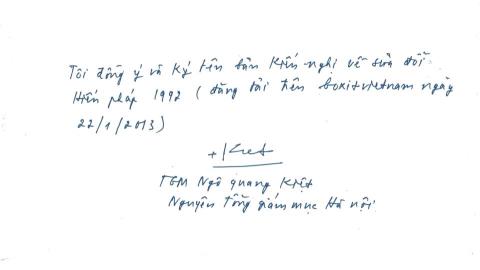 Tôi đồng ý và ký tên bản Kiến nghị về sửa đổi
Hiến pháp 1992 (đăng tải trên boxitvietnam ngày
22/1/2013)
+Kiet
TGM Ngô quang Kiệt
Nguyên Tổng giám mục Hà nội